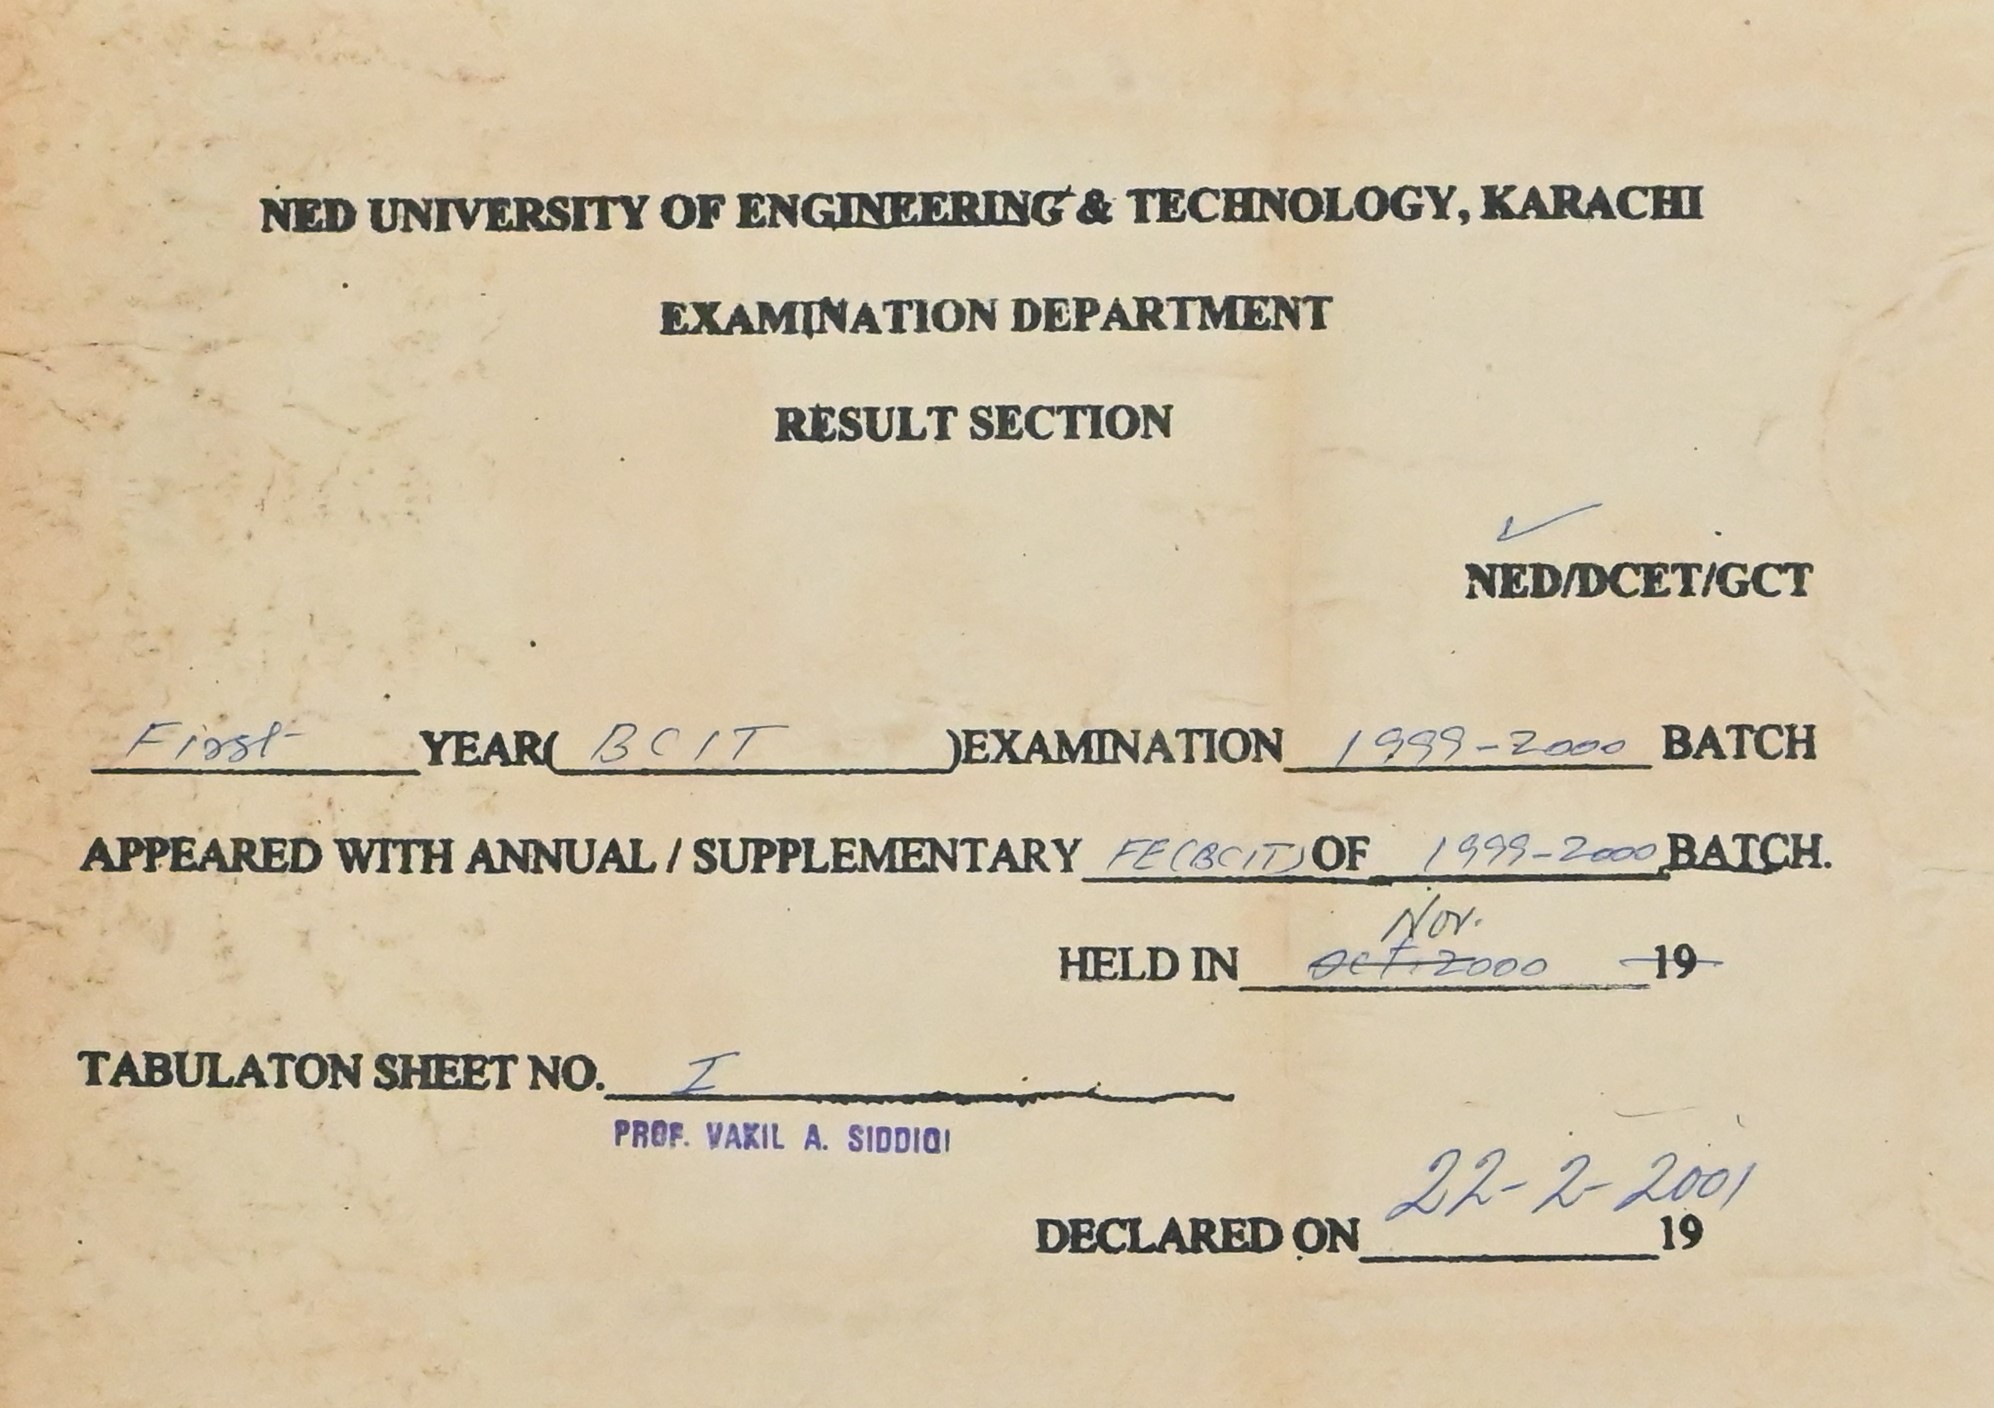 NED UNIVERSITY OF ENGINEERING & TECHNOLOGY, KARACHI
EXAMINATION DEPARTMENT
RESULT SECTION
✓
NED/DCET/GCT
First YEAR( BCIT )EXAMINATION 1999-2000 BATCH
APPEARED WITH ANNUAL / SUPPLEMENTARY FE(BCIT) OF 1999-2000 BATCH.
Nov.
HELD IN Oct. 2000 19
TABULATON SHEET NO. I
PROF. VAKIL A. SIDDIQI
22-2-2001
DECLARED ON 19